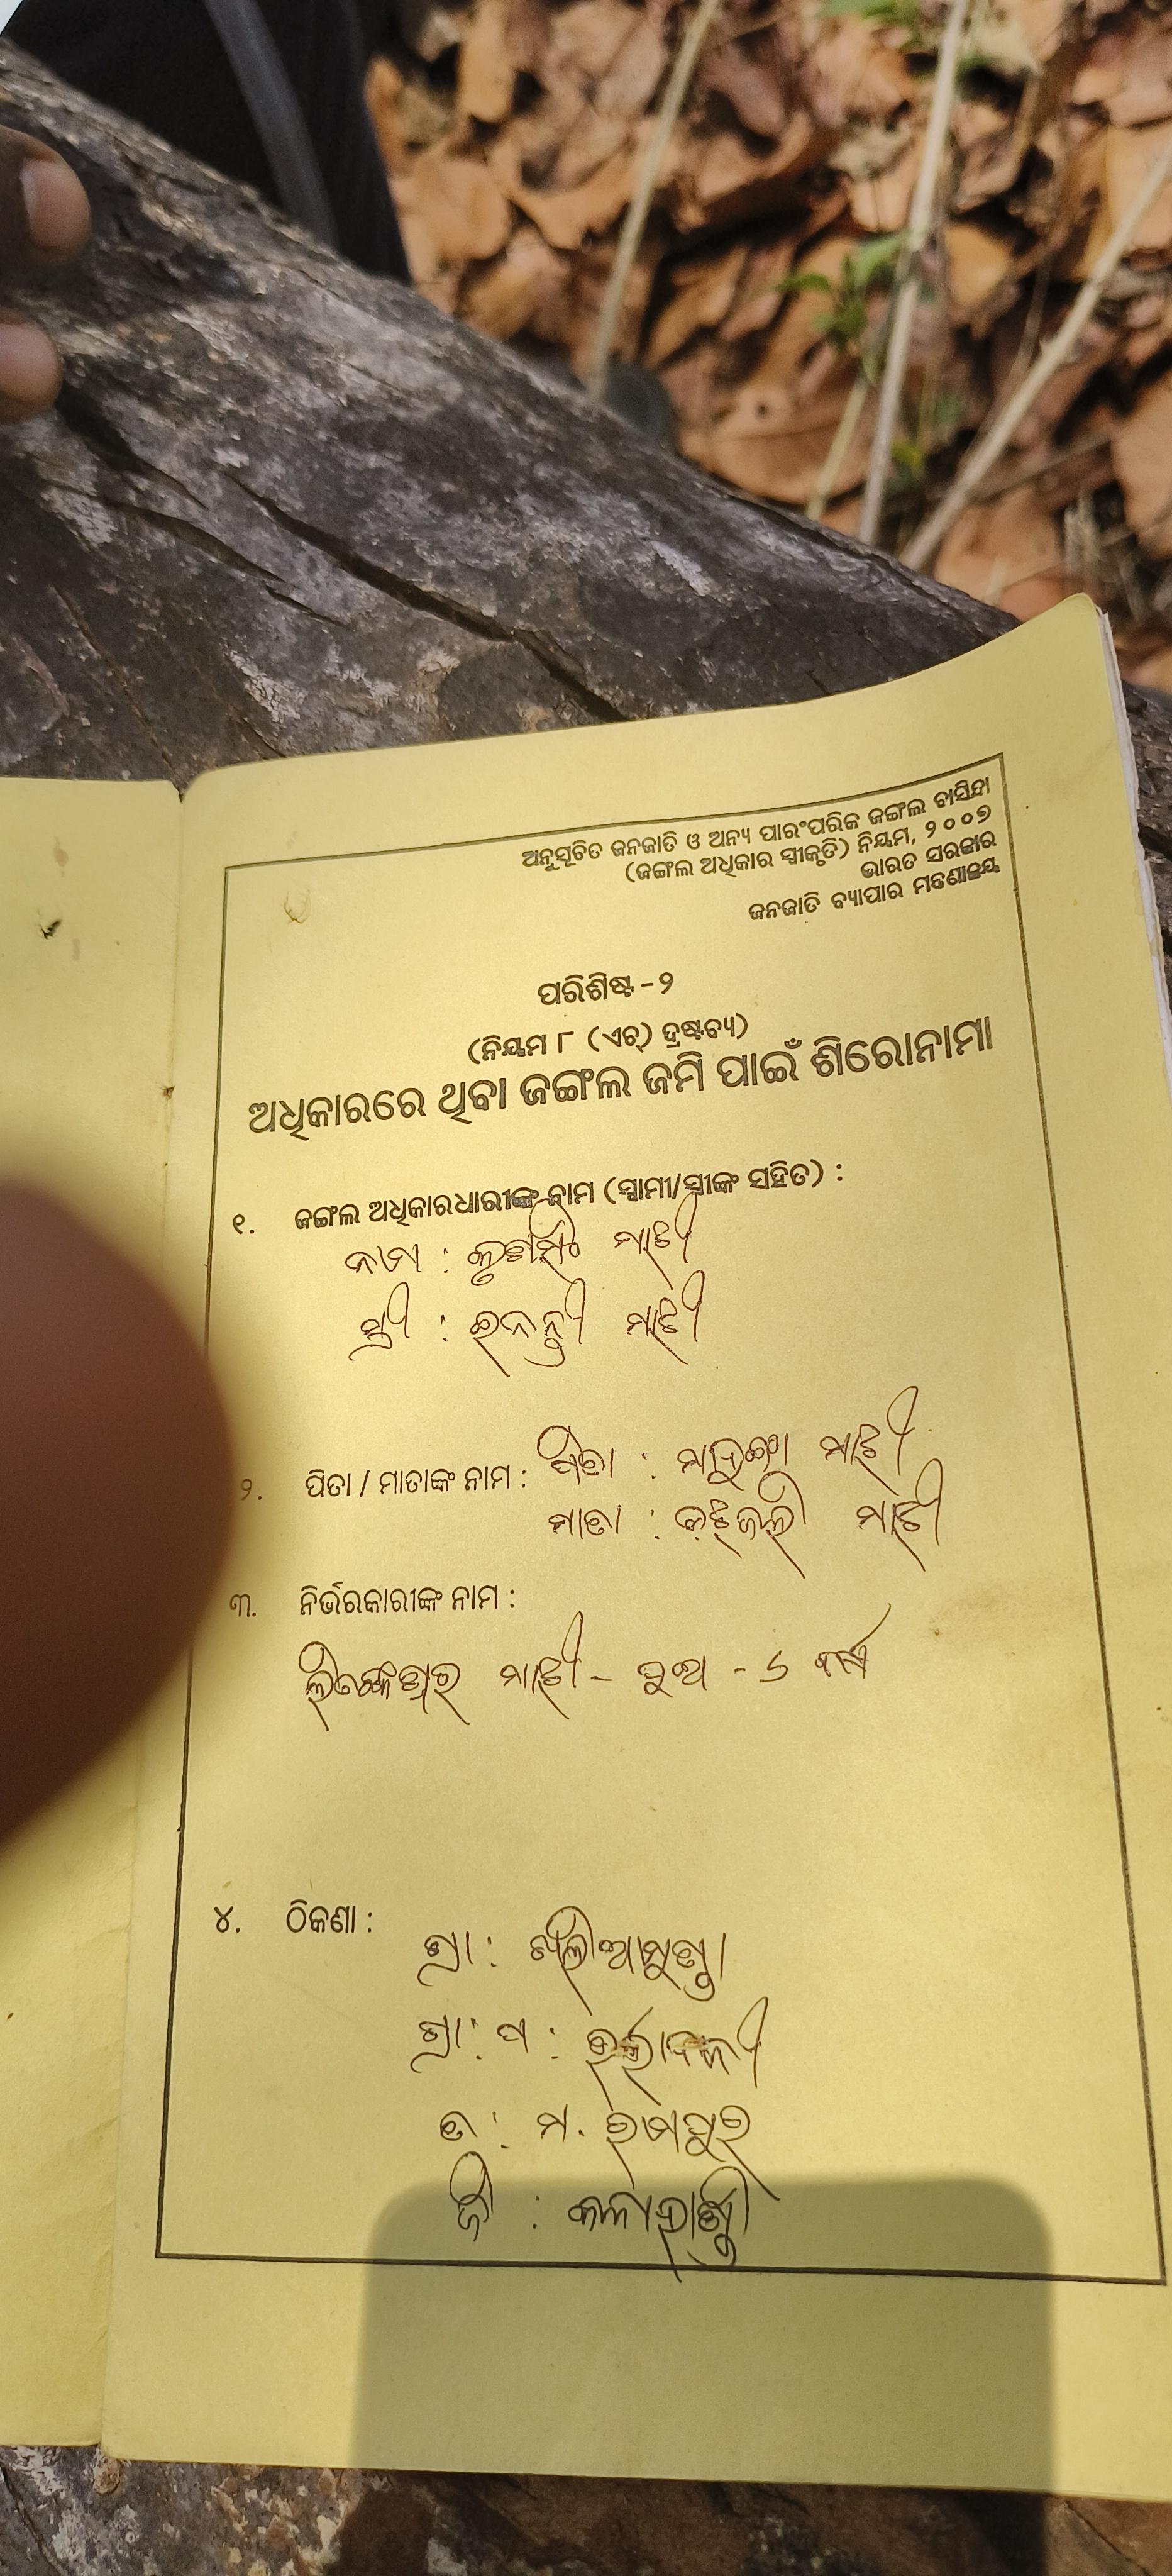 ଅନୁସୂଚିତ ଜନଜାତି ଓ ଅନ୍ୟ ପାରଂପରିକ ଜଙ୍ଗଲ ବାସିନ୍ଦା
(ଜଙ୍ଗଲ ଅଧିକାର ସ୍ୱୀକୃତି) ନିୟମ, ୨୦୦୭
ଭାରତ ସରକାର
ଜନଜାତି ବ୍ୟାପାର ମନ୍ତ୍ରଣାଳୟ
ପରିଶିଷ୍ଟ - ୨
(ନିୟମ ୮ (ଏଚ୍) ଦ୍ରଷ୍ଟବ୍ୟ)
ଅଧିକାରରେ ଥିବା ଜଙ୍ଗଲ ଜମି ପାଇଁ ଶିରୋନାମା
୧. ଜଙ୍ଗଲ ଅଧିକାରଧାରୀଙ୍କ ନାମ (ସ୍ୱାମୀ/ସ୍ତ୍ରୀଙ୍କ ସହିତ) :
ନାମ : ମାଝୀ
ସ୍ତ୍ରୀ : ମାଝୀ
୨. ପିତା / ମାତାଙ୍କ ନାମ : ପିତା : ମାଝୀ
ମାତା : ମାଝୀ
୩. ନିର୍ଭରକାରୀଙ୍କ ନାମ :
ମାଝୀ - ପୁଅ - ୬ ବର୍ଷ
୪. ଠିକଣା :
ଗ୍ରା :
ଗ୍ରା : ପ :
ବ୍ଲ : ମ. ରାମପୁର
ଜି : କଳାହାଣ୍ଡି